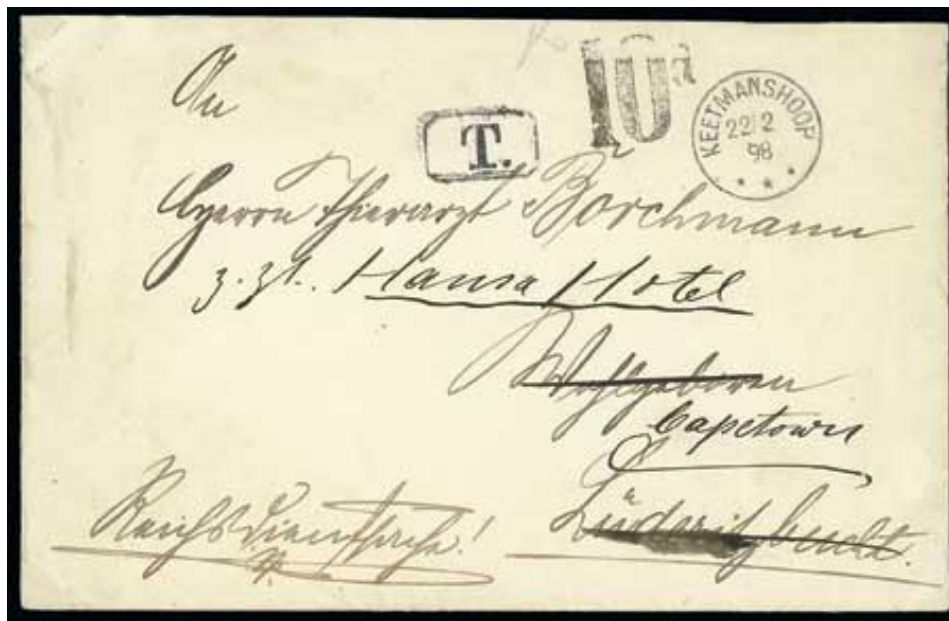 An
T.
10d
KEETMANSHOOP
22 2
98
Herrn Thierarzt Borchmann
z. Zt. Hansa Hotel
Wohlgeboren
Capetown
Lüderitzbucht.
Reichsdienstsache!